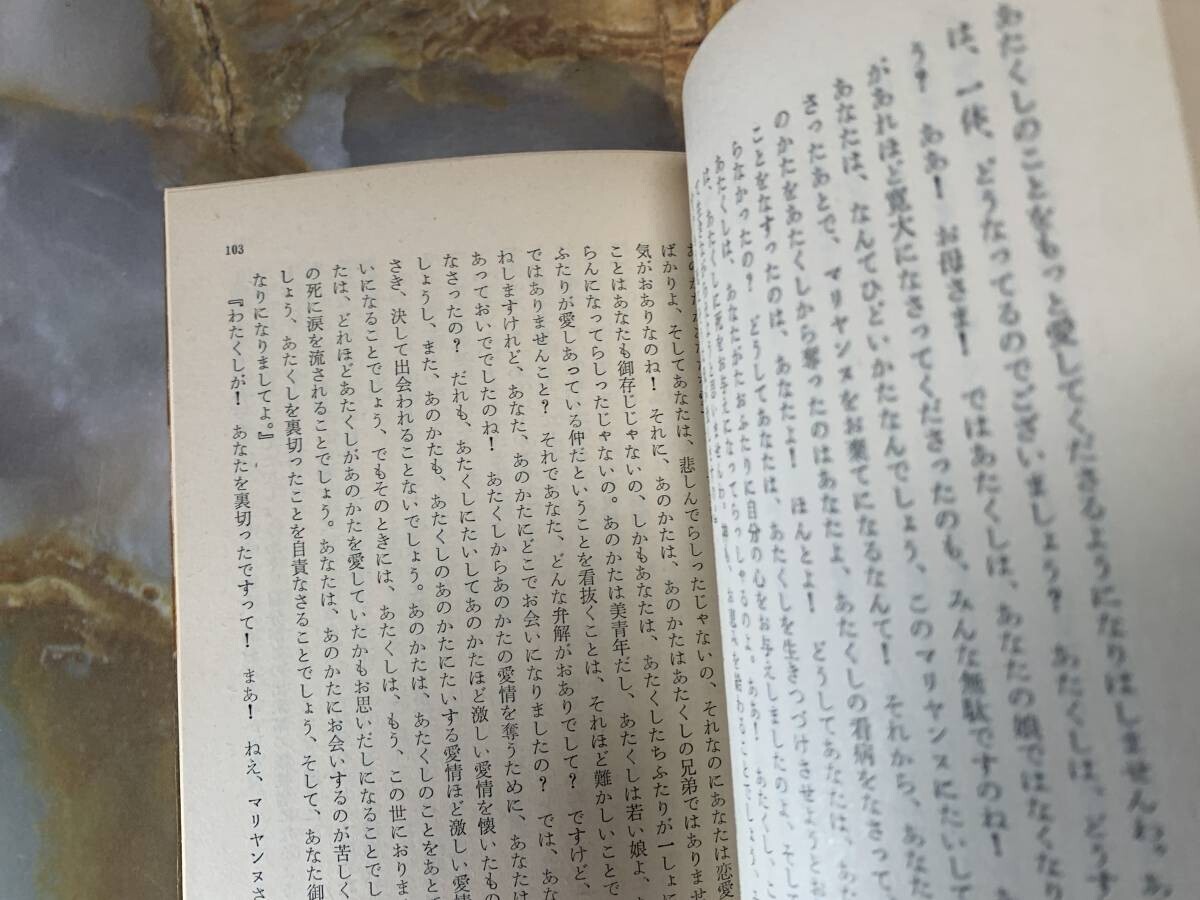 あたくしのことをもっと愛してくださるようになりはしませんわ。あ
は、一体、どうなってるのでございましょう？　あたくしは、どうす
う？　ああ！　お母さま！　ではあたくしは、あなたの娘ではなくなり
があれほど寛大になさってくださったのも、みんな無駄ですのね！
あなたは、なんてひどいかたなんでしょう、このマリヤンヌにたいして
さったあとで、マリヤンヌをお棄てになるなんて！　それから、あなた
のかたをあたくしから奪ったのはあなたよ、あたくしの看病をなさって
ことをなすったのは、あなたよ！　ほんとよ！　どうしてあなたは、あた
らなかったの？　どうしてあなたは、あたくしを生きつづけさせようとお
あたくしは、あなたがたおふたりに自分の心をお与えしましたのよ、そし
は、あたくしに死をお与えになってらっしゃるのよ。ああ！　あたくし、こ
ばかりよ、そしてあなたは、悲しんでらしったじゃないの、それなのにあなたは恋愛
気がおありなのね！　それに、あのかたは、あのかたはあたくしの兄弟ではありませ
ことはあなたも御存じじゃないの、しかもあなたは、あたくしたちふたりが一しょに
らんになってらしったじゃないの。あのかたは美青年だし、あたくしは若い娘よ、
ふたりが愛しあっている仲だということを看抜くことは、それほど難かしいことで
ではありませんこと？　それであなた、どんな弁解がおありでして？　ですけど、
ねしますけれど、あなた、あのかたにどこでお会いになりましたの？　では、あな
あっておいででしたのね！　あたくしからあのかたの愛情を奪うために、あなたは
なさったの？　だれも、あたくしにたいしてあのかたほど激しい愛情を懐いたもの
しょうし、また、あのかたも、あたくしのあのかたにたいする愛情ほど激しい愛情
さき、決して出会われることないでしょう。あのかたは、あたくしのことをあと
いになることでしょう、でもそのときには、あたくしは、もう、この世におりま
たは、どれほどあたくしがあのかたを愛していたかもお思いだしになることでし
の死に涙を流されることでしょう。あなたは、あのかたにお会いするのが苦しく
しょう、あたくしを裏切ったことを自責なさることでしょう、そして、あなた御
なりになりましてよ。』
『わたくしが！　あなたを裏切ったですって！　まあ！　ねえ、マリヤンヌさ
103